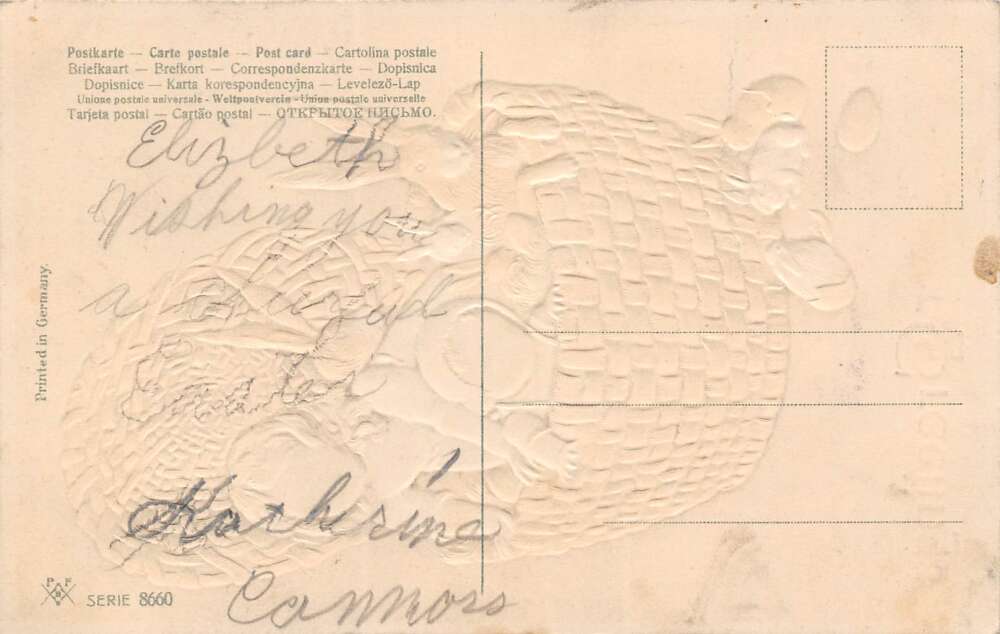 Postkarte — Carte postale — Post card — Cartolina postale
Briefkaart — Brefkort — Correspondenzkarte — Dopisnica
Dopisnice — Karta korespondencyjna — Levelező-Lap
Unione postale universale - Weltpostverein - Union postale universelle
Tarjeta postal — Cartão postal — ОТКРЫТОЕ ПИСЬМО.
Elizbeth
Wishing you
a
Katherine
Connors
Printed in Germany.
P F B
SERIE 8660